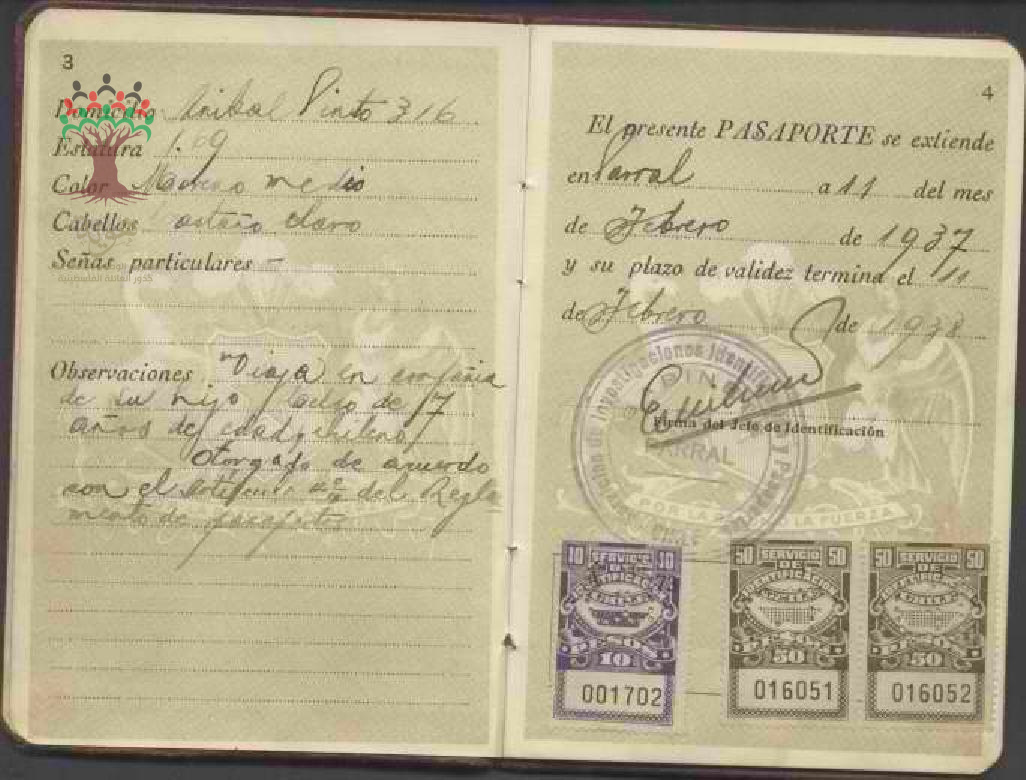 3
Domicilio Anibal Pinto 316
Estatura 1.69
Color Moreno medio
Cabellos castaño claro
Señas particulares –
Observaciones Viaja en compañia
de su hijo de 17
años de edad, chileno
Otorgado de acuerdo
con el del Regla-
mento de pasaportes
4
El presente PASAPORTE se extiende
en Parral a 11 del mes
de Febrero de 1937
y su plazo de validez termina el 11
de Febrero de 1938
Firma del Jefe de Identificación
PARRAL
POR LA FUERZA
CHILE
10 SERVICIO 10
DE
IDENTIFICACION
PESOS
10
001702
50 SERVICIO 50
DE
IDENTIFICACION
PESOS
50
016051
50 SERVICIO 50
DE
IDENTIFICACION
PESOS
50
016052